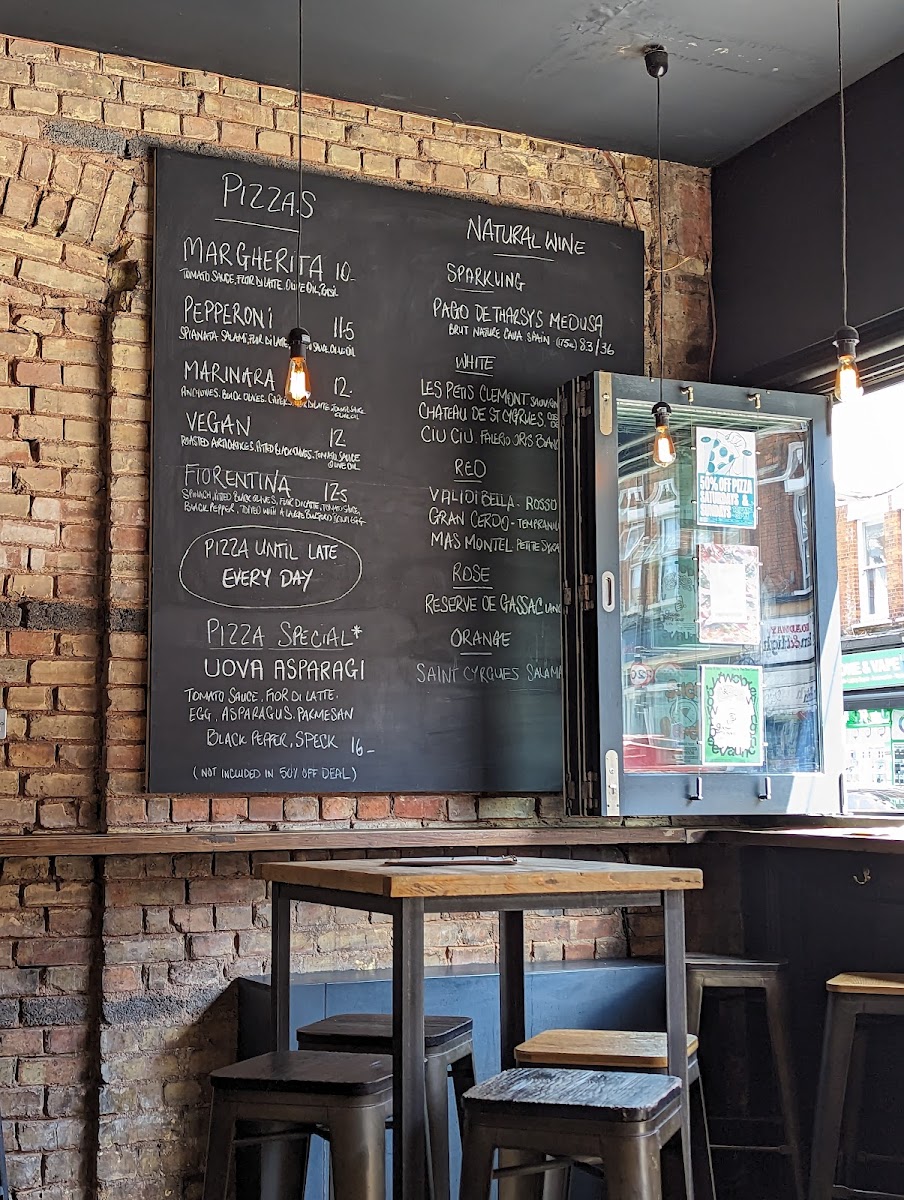 PIZZAS
MARGHERITA 10-
TOMATO SAUCE, FIOR DI LATTE, OLIVE OIL, BASIL
PEPPERONI 11.5
SPIANATA SALAMI, FIOR DI LATTE, SAUCE, OLIVE OIL
MARINARA 12-
ANCHOVIES, BLACK OLIVES, CAPERS, FIOR DI LATTE, TOMATO SAUCE
OLIVE OIL
VEGAN 12
ROASTED ARTICHOKES, PITTED BLACK OLIVES, TOMATO SAUCE
OLIVE OIL
FIORENTINA 12.5
SPINACH, PITTED BLACK OLIVES, FIOR DI LATTE, TOMATO SAUCE,
BLACK PEPPER, TOPPED WITH A LARGE BURFORD BROWN EGG
PIZZA UNTIL LATE
EVERY DAY
PIZZA SPECIAL*
UOVA ASPARAGI
TOMATO SAUCE, FIOR DI LATTE,
EGG, ASPARAGUS, PARMESAN
BLACK PEPPER, SPECK 16-
(NOT INCLUDED IN 50% OFF DEAL)
NATURAL WINE
SPARKLING
PAGO DE THARSYS MEDUSA
BRUT NATURE CAVA SPAIN (175ml) 8.3/36
WHITE
LES PETITS CLEMONT SAUVIGN
CHATEAU DE ST CYRGUES
CIU CIU, FALERIO ORIS BIANC
RED
VALIDIBELLA - ROSSO
GRAN CERDO - TEMPRANI
MAS MONTEL PETITE SYRA
ROSE
RESERVE DE GASSAC
ORANGE
SAINT CYRGUES SALAMA
50% OFF PIZZA
SATURDAYS &
SUNDAYS